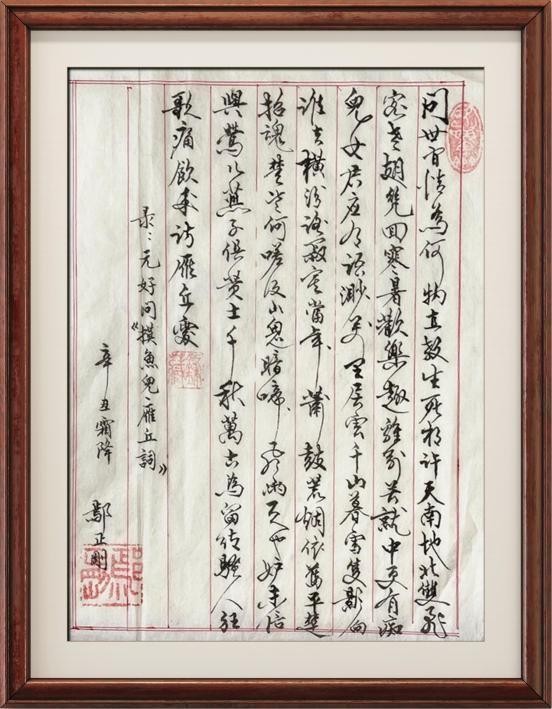 問世間情為何物直教生死相許天南地北雙飛
客老翅幾回寒暑歡樂趣離別苦就中更有痴
兒女君應有語渺萬里層雲千山暮雪隻影向
誰去橫汾路寂寞當年簫鼓荒烟依舊平楚
招魂楚些何嗟及山鬼暗啼風雨天也妒未信
與鶯兒燕子俱黃土千秋萬古為留待騷人狂
歌痛飲來訪雁丘處
录:元好問《摸魚兒雁丘詞》
辛丑霜降
鄢正剛